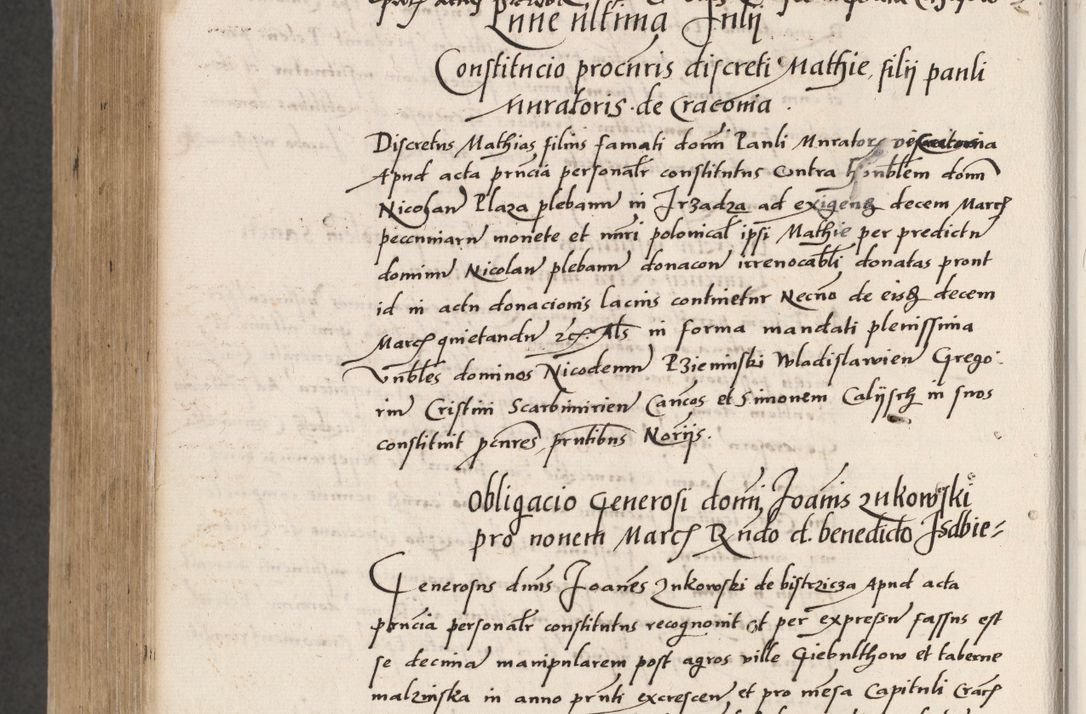 Lune ultima Julij
Constitucio procuris discreti Mathie, filij pauli
Muratoris de Cracouia.
Discretus Mathias filius famati domi Pauli Murator
Apud acta prncia personalr constitutus Contra honblem domi
Nicolaum Plaza plebanum in Jrzadza ad exigend decem March
pecuniarum monete et nuri polonical ipsi Mathie per predictum
dominum Nicolaum plebanum donacon irreuocabli donatas prout
id in actu donacionis lacius continetur Necno de eisd decem
March quietandum &c. Als in forma mandati plenissima
Vnbles dominos Nicodemum Pzieminski Wladislauien Grego
rium Cristini Scarbimirien Cancos et Simonem Calijsch in suos
constituit pcures prntibus Norijs.
Obligacio Generosi domi Joanis Zukowski
pro nonem March Rndo d. benedicto Jsdbie=
Generosus dnis Joanes Zukowski de bistrzicza Apud acta
prncia personalr constitutus recognouit et per expressum fassus est
se decimam manipularem post agros ville Giebulthow et taberne
malzinska in anno prnti excrescen et pro mesa Capituli Crach